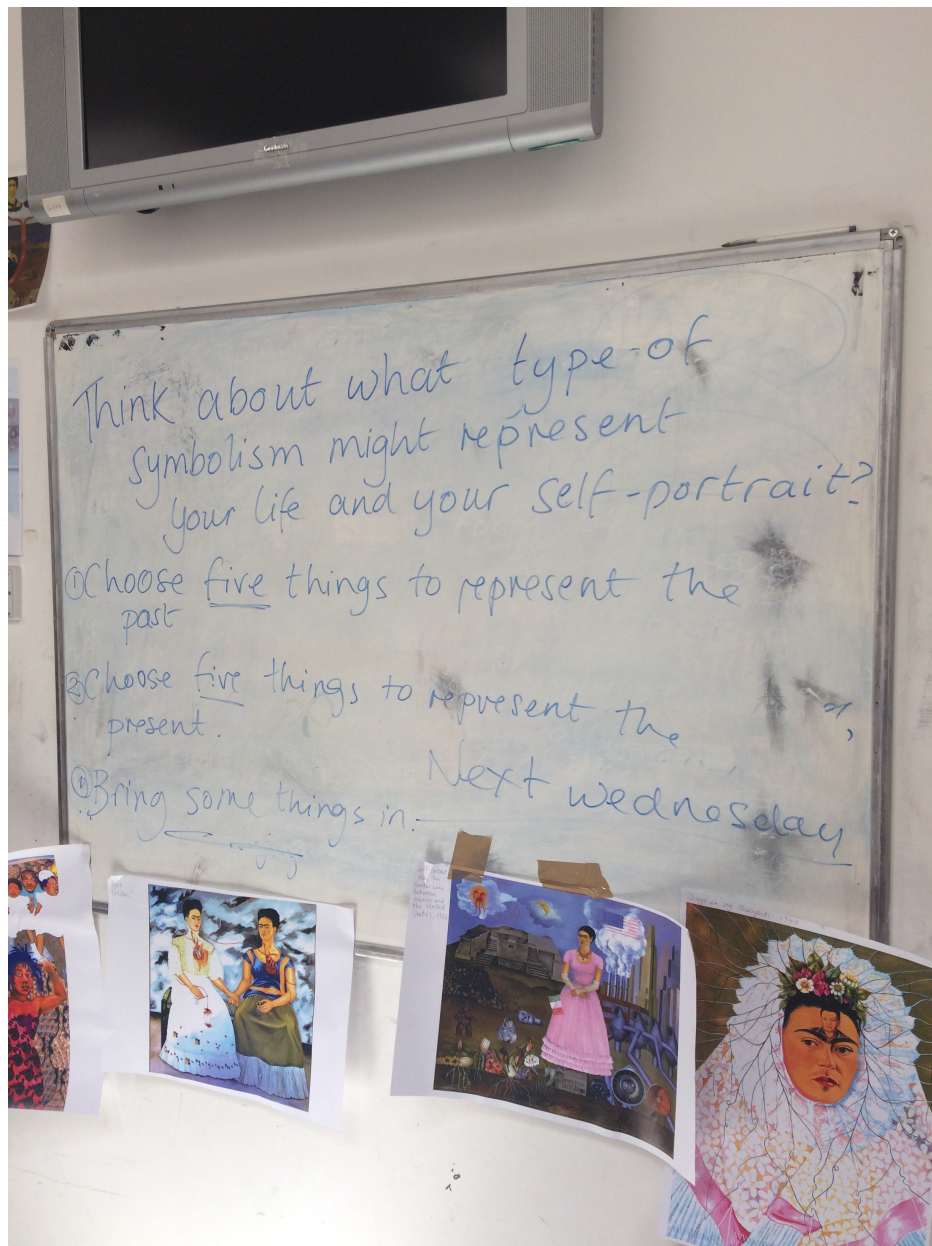 Goodmans
Think about what type of
symbolism might represent
your life and your self-portrait?
① Choose five things to represent the
past
② Choose five things to represent the
present.
Bring some things in.
Next wednesday